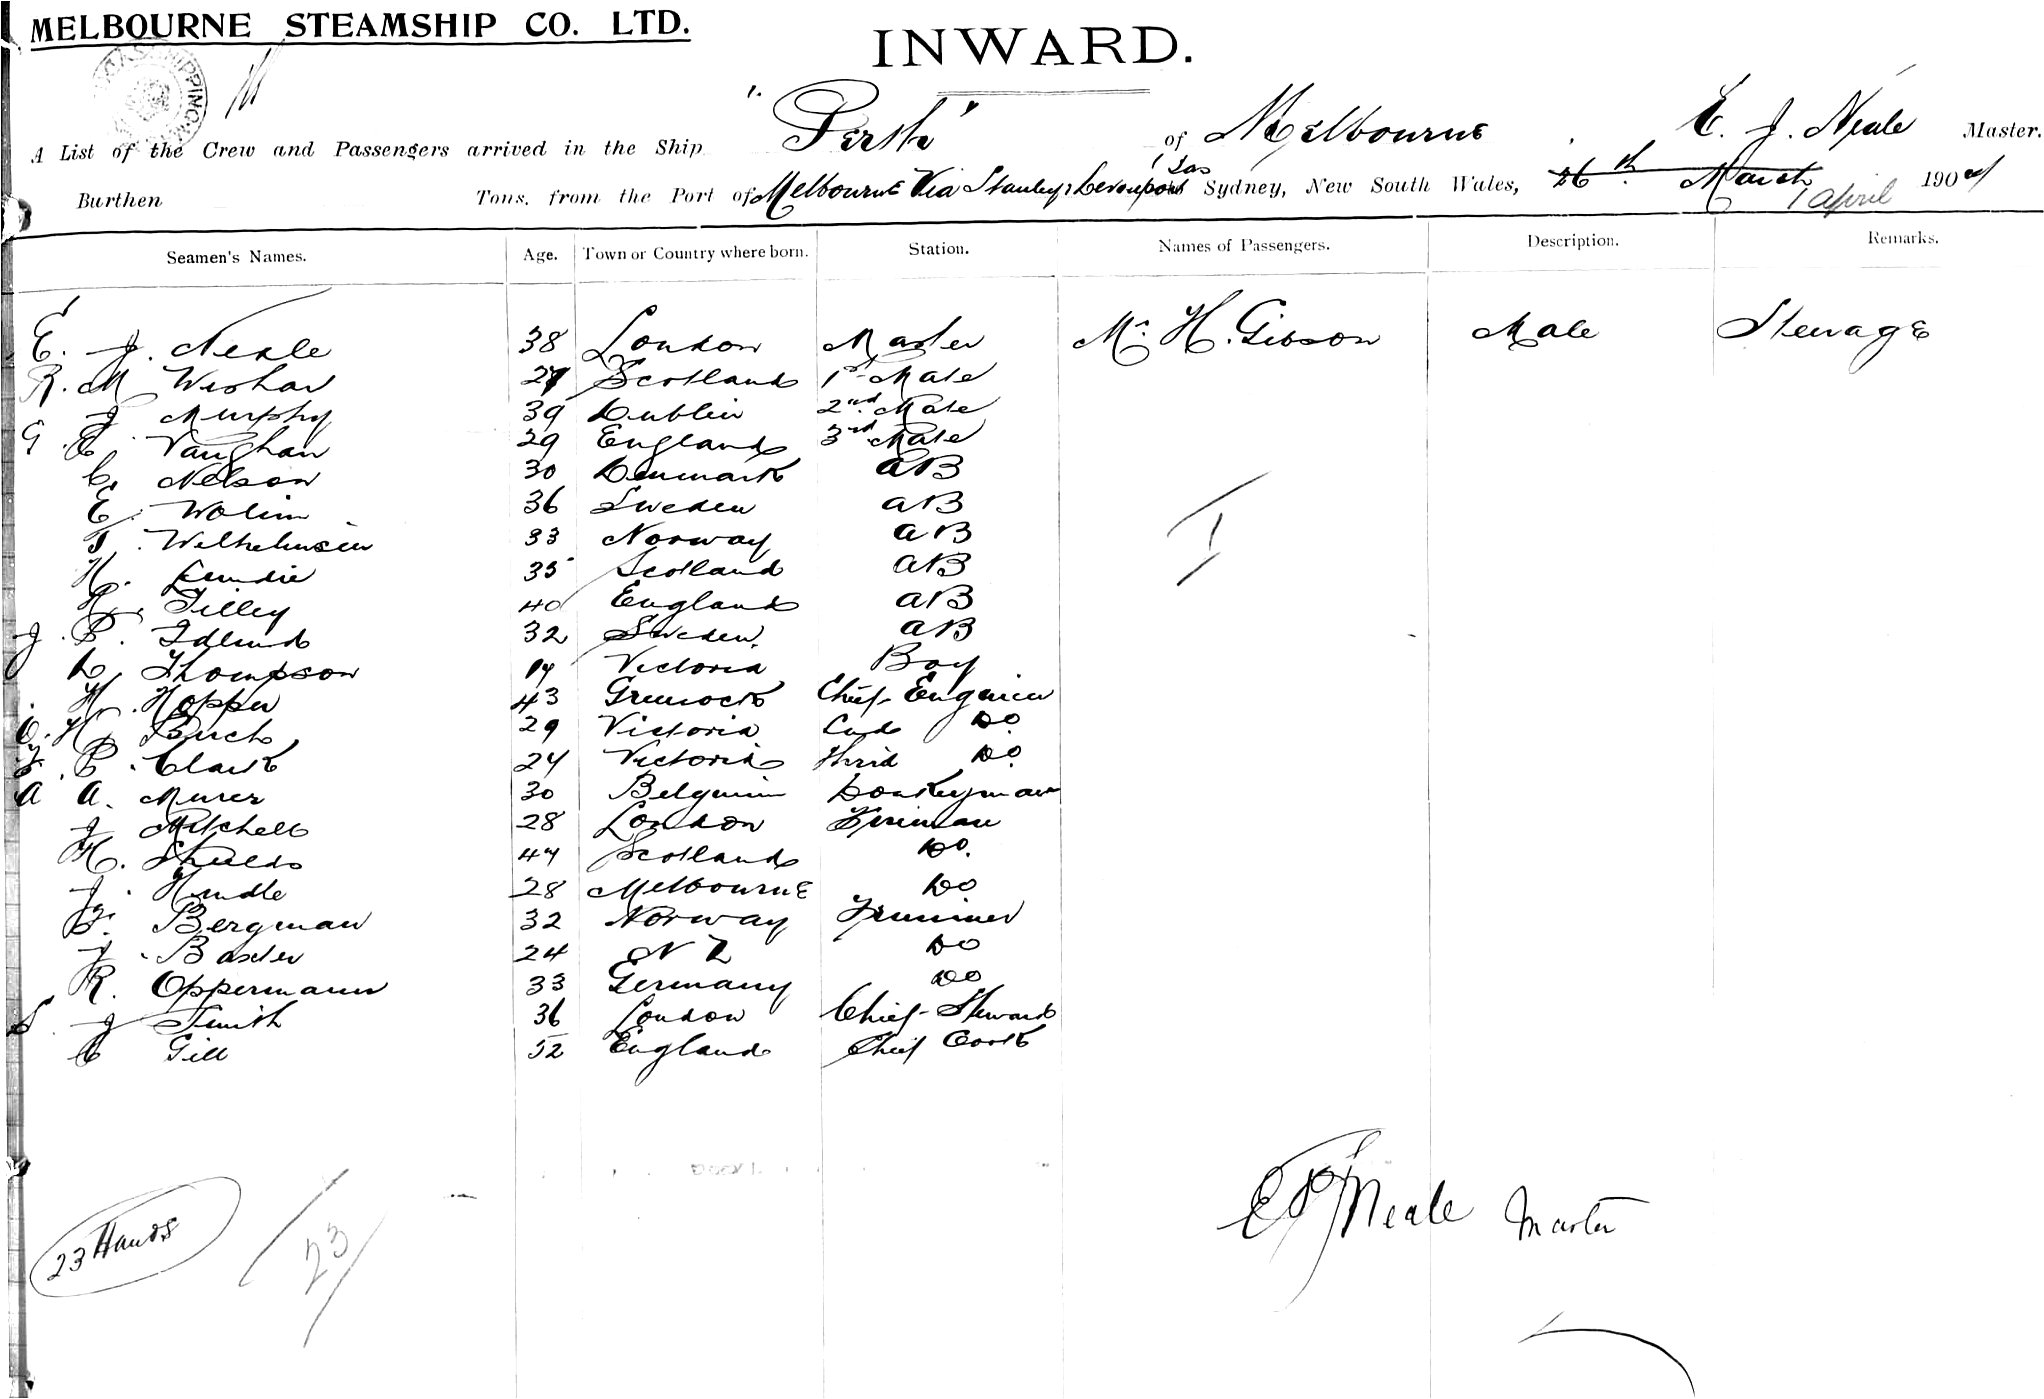 MELBOURNE STEAMSHIP CO. LTD.
INWARD.
A List of the Crew and Passengers arrived in the Ship "Perth" of Melbourne E. J. Neale Master.
Burthen Tons, from the Port of Melbourne Via Stanley & Devonport Tas Sydney, New South Wales, 26th March 1 April 1904
Seamen's Names. Age. Town or Country where born. Station. Names of Passengers. Description. Remarks.
E. J. Neale 38 London Master Mr. H. Gibson Male Steerage
R. M Wishar 27 Scotland 1st Mate
J Murphy 39 Dublin 2nd Mate
G. E. Vaughan 29 England 3rd Mate
C. Nelson 30 Denmark AB
E. Wolin 36 Sweden AB
T. Welhelmsen 33 Norway AB
H. Lundie 35 Scotland AB
H. Tilley 40 England AB
J. P. Edlund 32 Sweden AB
L. Thompson 17 Victoria Boy
H. Hopper 43 Greenock Chief Engineer
O. H. Burch 29 Victoria 2nd Do
F. P. Clark 24 Victoria Thrid Do
A A. Murer 30 Belguim Donkeyman
J Mitchell 28 London Fireman
H. Shields 44 Scotland Do.
J. Hindle 28 Melbourne Do
F. Bergman 32 Norway Trimmer
J. Baxter 24 N Z Do
R. Oppermann 33 Germany Do
S. J Smith 36 London Chief Steward
C Gill 52 England Chief Cook
I
23 Hands
23
E J Neale Master